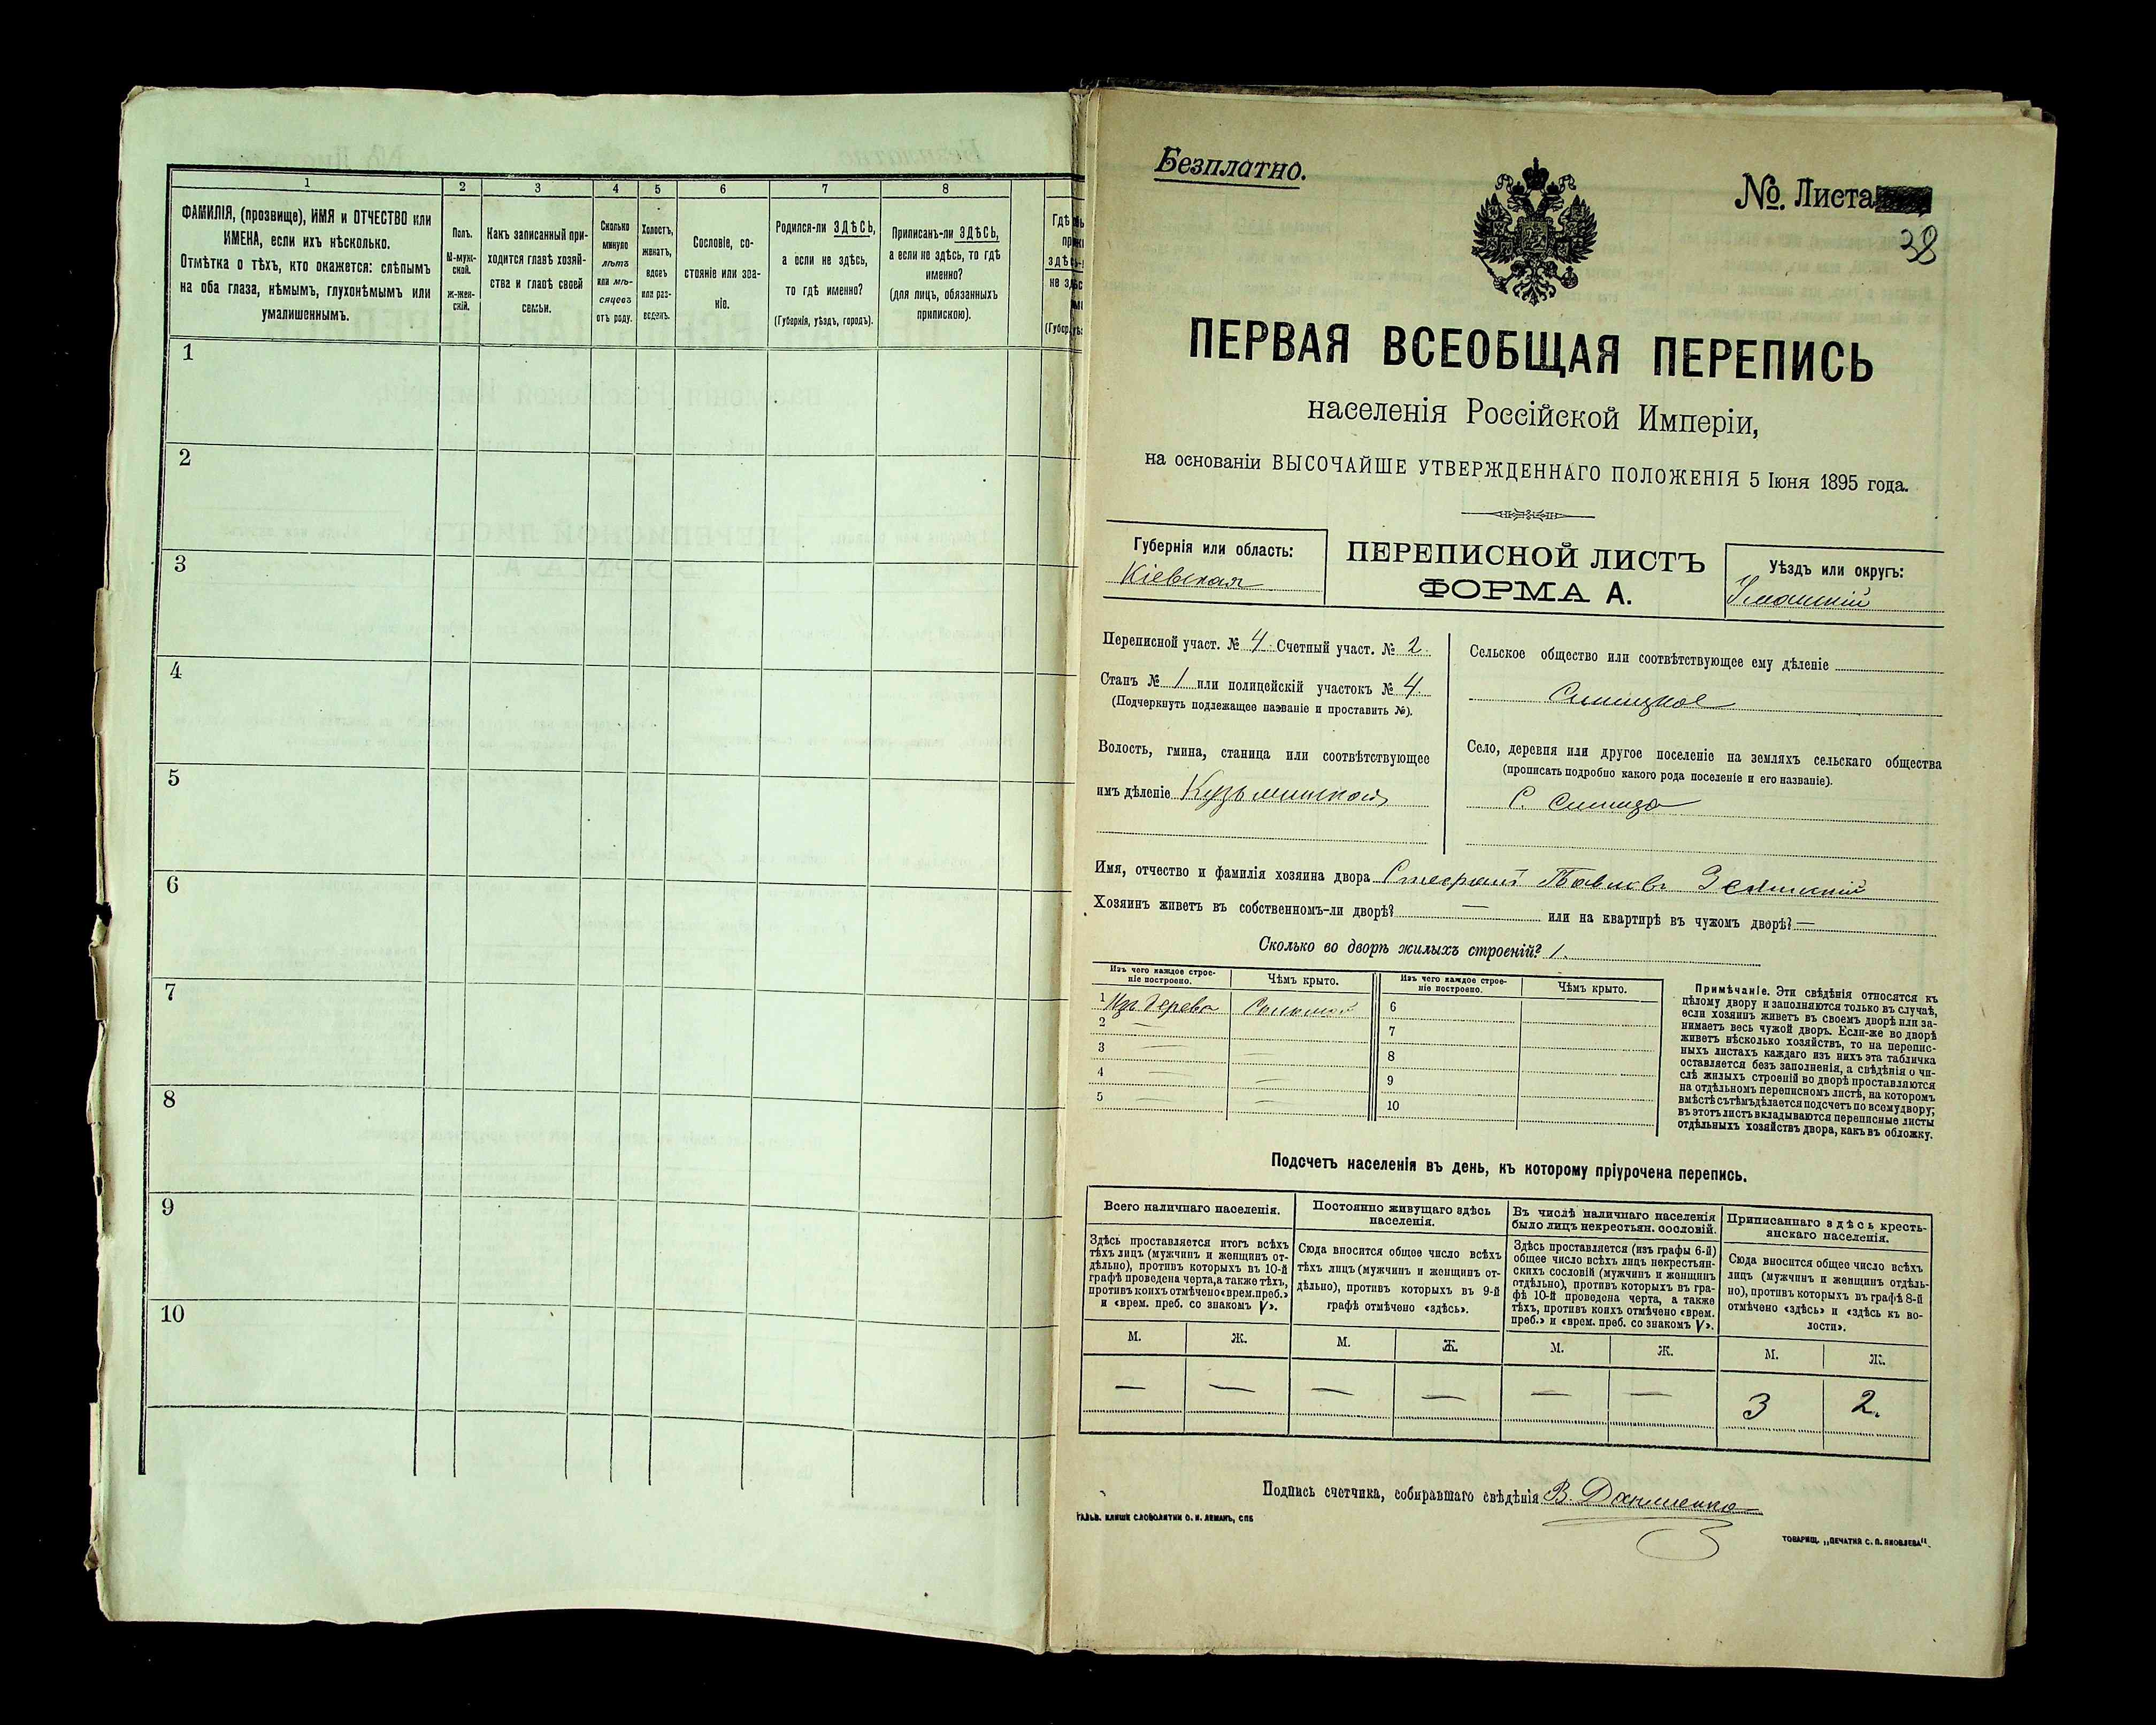 1 2 3 4 5 6 7 8
ФАМИЛІЯ, (прозвище), ИМЯ и ОТЧЕСТВО или
ИМЕНА, если ихъ нѣсколько.
Отмѣтка о тѣхъ, кто окажется: слѣпымъ
на оба глаза, нѣмымъ, глухонѣмымъ или
умалишеннымъ.
Полъ.
М-муж-
ской.
ж-жен-
скій.
Какъ записанный при-
ходится главѣ хозяй-
ства и главѣ своей
семьи.
Сколько
минуло
лѣтъ
или мѣ-
сяцевъ
отъ роду.
Холостъ,
женатъ,
вдовъ
или раз-
веденъ.
Сословіе, со-
стояніе или зва-
ніе.
Родился-ли ЗДѢСЬ,
а если не здѣсь,
то гдѣ именно?
(Губернія, уѣздъ, городъ).
Приписанъ-ли ЗДѢСЬ,
а если не здѣсь, то гдѣ
именно?
(для лицъ, обязанныхъ
припискою).
1
2
3
4
5
6
7
8
9
10
Безплатно.
№ Листа
38
ПЕРВАЯ ВСЕОБЩАЯ ПЕРЕПИСЬ
населенія Россійской Имперіи,
на основаніи ВЫСОЧАЙШЕ УТВЕРЖДЕННАГО ПОЛОЖЕНІЯ 5 Іюня 1895 года.
Губернія или область:
Кіевская
ПЕРЕПИСНОЙ ЛИСТЪ
ФОРМА А.
Уѣздъ или округъ:
Уманскій
Переписной участ. № 4. Счетный участ. № 2.
Станъ № 1 или полицейскій участокъ № 4.
(Подчеркнуть подлежащее названіе и проставить №).
Волость, гмина, станица или соотвѣтствующее
имъ дѣленіе
Сельское общество или соотвѣтствующее ему дѣленіе
Синицкое
Село, деревня или другое поселеніе на земляхъ сельскаго общества
(прописать подробно какого рода поселеніе и его названіе).
С. Синица
Имя, отчество и фамилія хозяина двора
Хозяинъ живетъ въ собственномъ-ли дворѣ? — или на квартирѣ въ чужомъ дворѣ? —
Сколько во дворѣ жилыхъ строеній? 1.
Изъ чего каждое строе-
ніе построено.
Чѣмъ крыто.
Изъ чего каждое строе-
ніе построено.
Чѣмъ крыто.
1 Изъ дерева Соломой 6
2 — 7
3 — — 8
4 — — 9
5 — — 10
Примѣчаніе. Эти свѣдѣнія относятся къ
цѣлому двору и заполняются только въ случаѣ,
если хозяинъ живетъ въ своемъ дворѣ или за-
нимаетъ весь чужой дворъ. Если-же во дворѣ
живетъ нѣсколько хозяйствъ, то на перепис-
ныхъ листахъ каждаго изъ нихъ эта табличка
оставляется безъ заполненія, а свѣдѣнія о чи-
слѣ жилыхъ строеній во дворѣ проставляются
на отдѣльномъ переписномъ листѣ, на которомъ
вмѣстѣ съ тѣмъ дѣлается подсчетъ по всему двору;
въ этотъ листъ вкладываются переписные листы
отдѣльныхъ хозяйствъ двора, какъ въ обложку.
Подсчетъ населенія въ день, къ которому пріурочена перепись.
Всего наличнаго населенія.
Здѣсь проставляется итогъ всѣхъ
тѣхъ лицъ (мужчинъ и женщинъ от-
дѣльно), противъ которыхъ въ 10-й
графѣ проведена черта, а также тѣхъ,
противъ коихъ отмѣчено «врем. преб.»
и «врем. преб. со знакомъ V».
Постоянно живущаго здѣсь
населенія.
Сюда вносится общее число всѣхъ
тѣхъ лицъ (мужчинъ и женщинъ от-
дѣльно), противъ которыхъ въ 9-й
графѣ отмѣчено «здѣсь».
Въ числѣ наличнаго населенія
было лицъ некрестьян. сословій.
Здѣсь проставляется (изъ графы 6-й)
общее число всѣхъ лицъ некрестьян-
скихъ сословій (мужчинъ и женщинъ
отдѣльно), противъ которыхъ въ гра-
фѣ 10-й проведена черта, а также
тѣхъ, противъ коихъ отмѣчено «врем.
преб.» и «врем. преб. со знакомъ V».
Приписаннаго здѣсь кресть-
янскаго населенія.
Сюда вносится общее число всѣхъ
лицъ (мужчинъ и женщинъ отдѣль-
но), противъ которыхъ въ графѣ 8-й
отмѣчено «здѣсь» и «здѣсь къ во-
лости».
М. Ж. М. Ж. М. Ж. М. Ж.
— — — — — — 3 2.
Подпись счетчика, собиравшаго свѣдѣнія В. Даниленко
ГАЛЬВ. КЛИШЕ СЛОВОЛИТНИ О. И. ЛЕМАНЪ, СПБ
ТОВАРИЩ. „ПЕЧАТНЯ С. П. ЯКОВЛЕВА“.